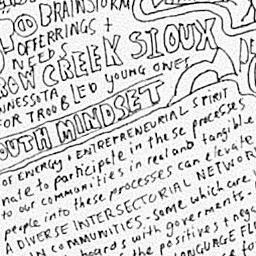 BRAINSTORM
OFFERRINGS +
NEEDS
CREEK SIOUX
NNESOTA
FOR TROUBLED YOUNG ONES
OUTH MINDSET
OF ENERGY & ENTREPRENEURIAL SPIRIT
nate to participate in these processes
to our communities in real and tangible
people into these processes can elevate
A DIVERSE INTERSECTORIAL NETWOR
IN COMMUNITIES - some which are
boards with goverments -
the positives + nega
LANGUAGE FLU